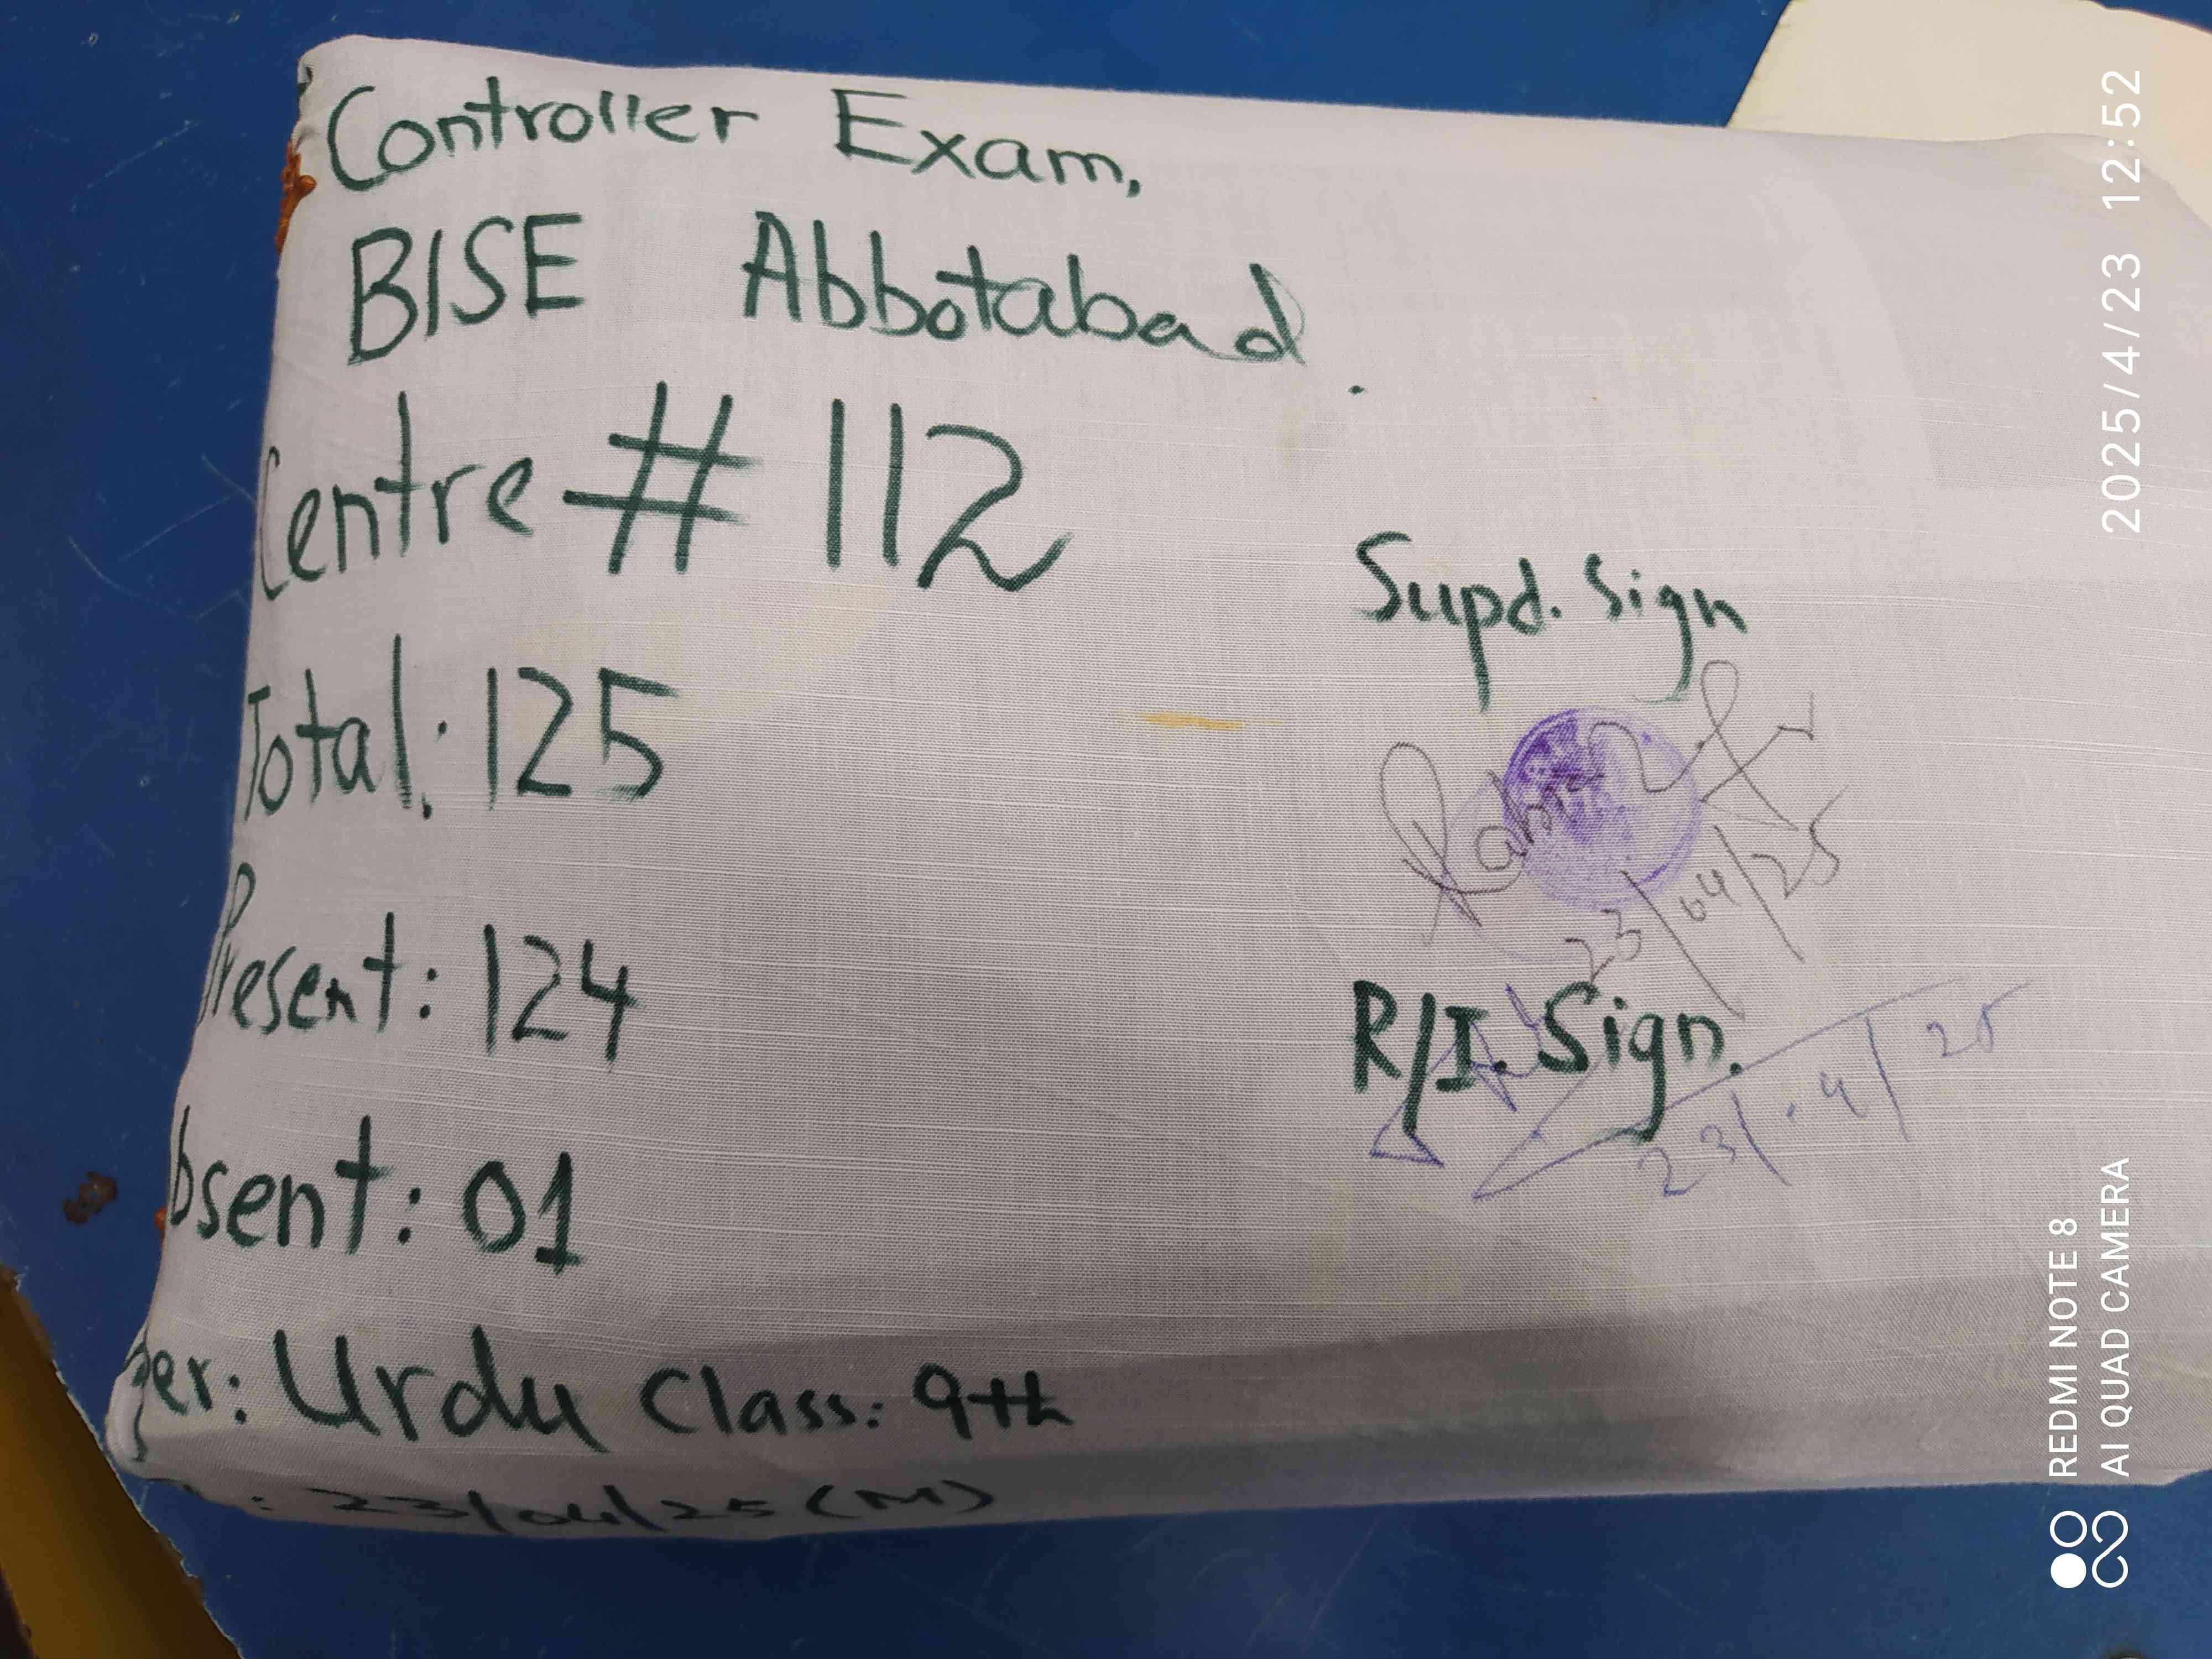 Controller Exam,
BISE Abbotabad.
Centre # 112
Total: 125
Present: 124
bsent: 01
per: Urdu Class: 9th
: 23/04/25 (M)
Supd. Sign
23/04/25
R/I. Sign.
23/.4/25
2025/4/23 12:52
REDMI NOTE 8
AI QUAD CAMERA